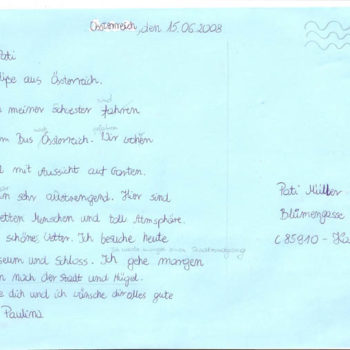 Österreich, den 15.06.2008
Pati
üße aus Österreich.
meiner Schwester und fahren
m Bus nach Österreich. Wir wohnen
l mit Aussicht auf Garten.
in sehr anstrengend. Hier sind
etten Menschen und toll Atmosphäre.
schöne Wetter. Ich besuche heute
Ich würde morgen einen Stadtrundgang
seum und Schloss. Ich gehe morgen
n nach der Stadt und Hügel.
e dich und ich wünsche dir alles gute
Paulina
Pati Müller
Blumengasse
C 85910 - Ka